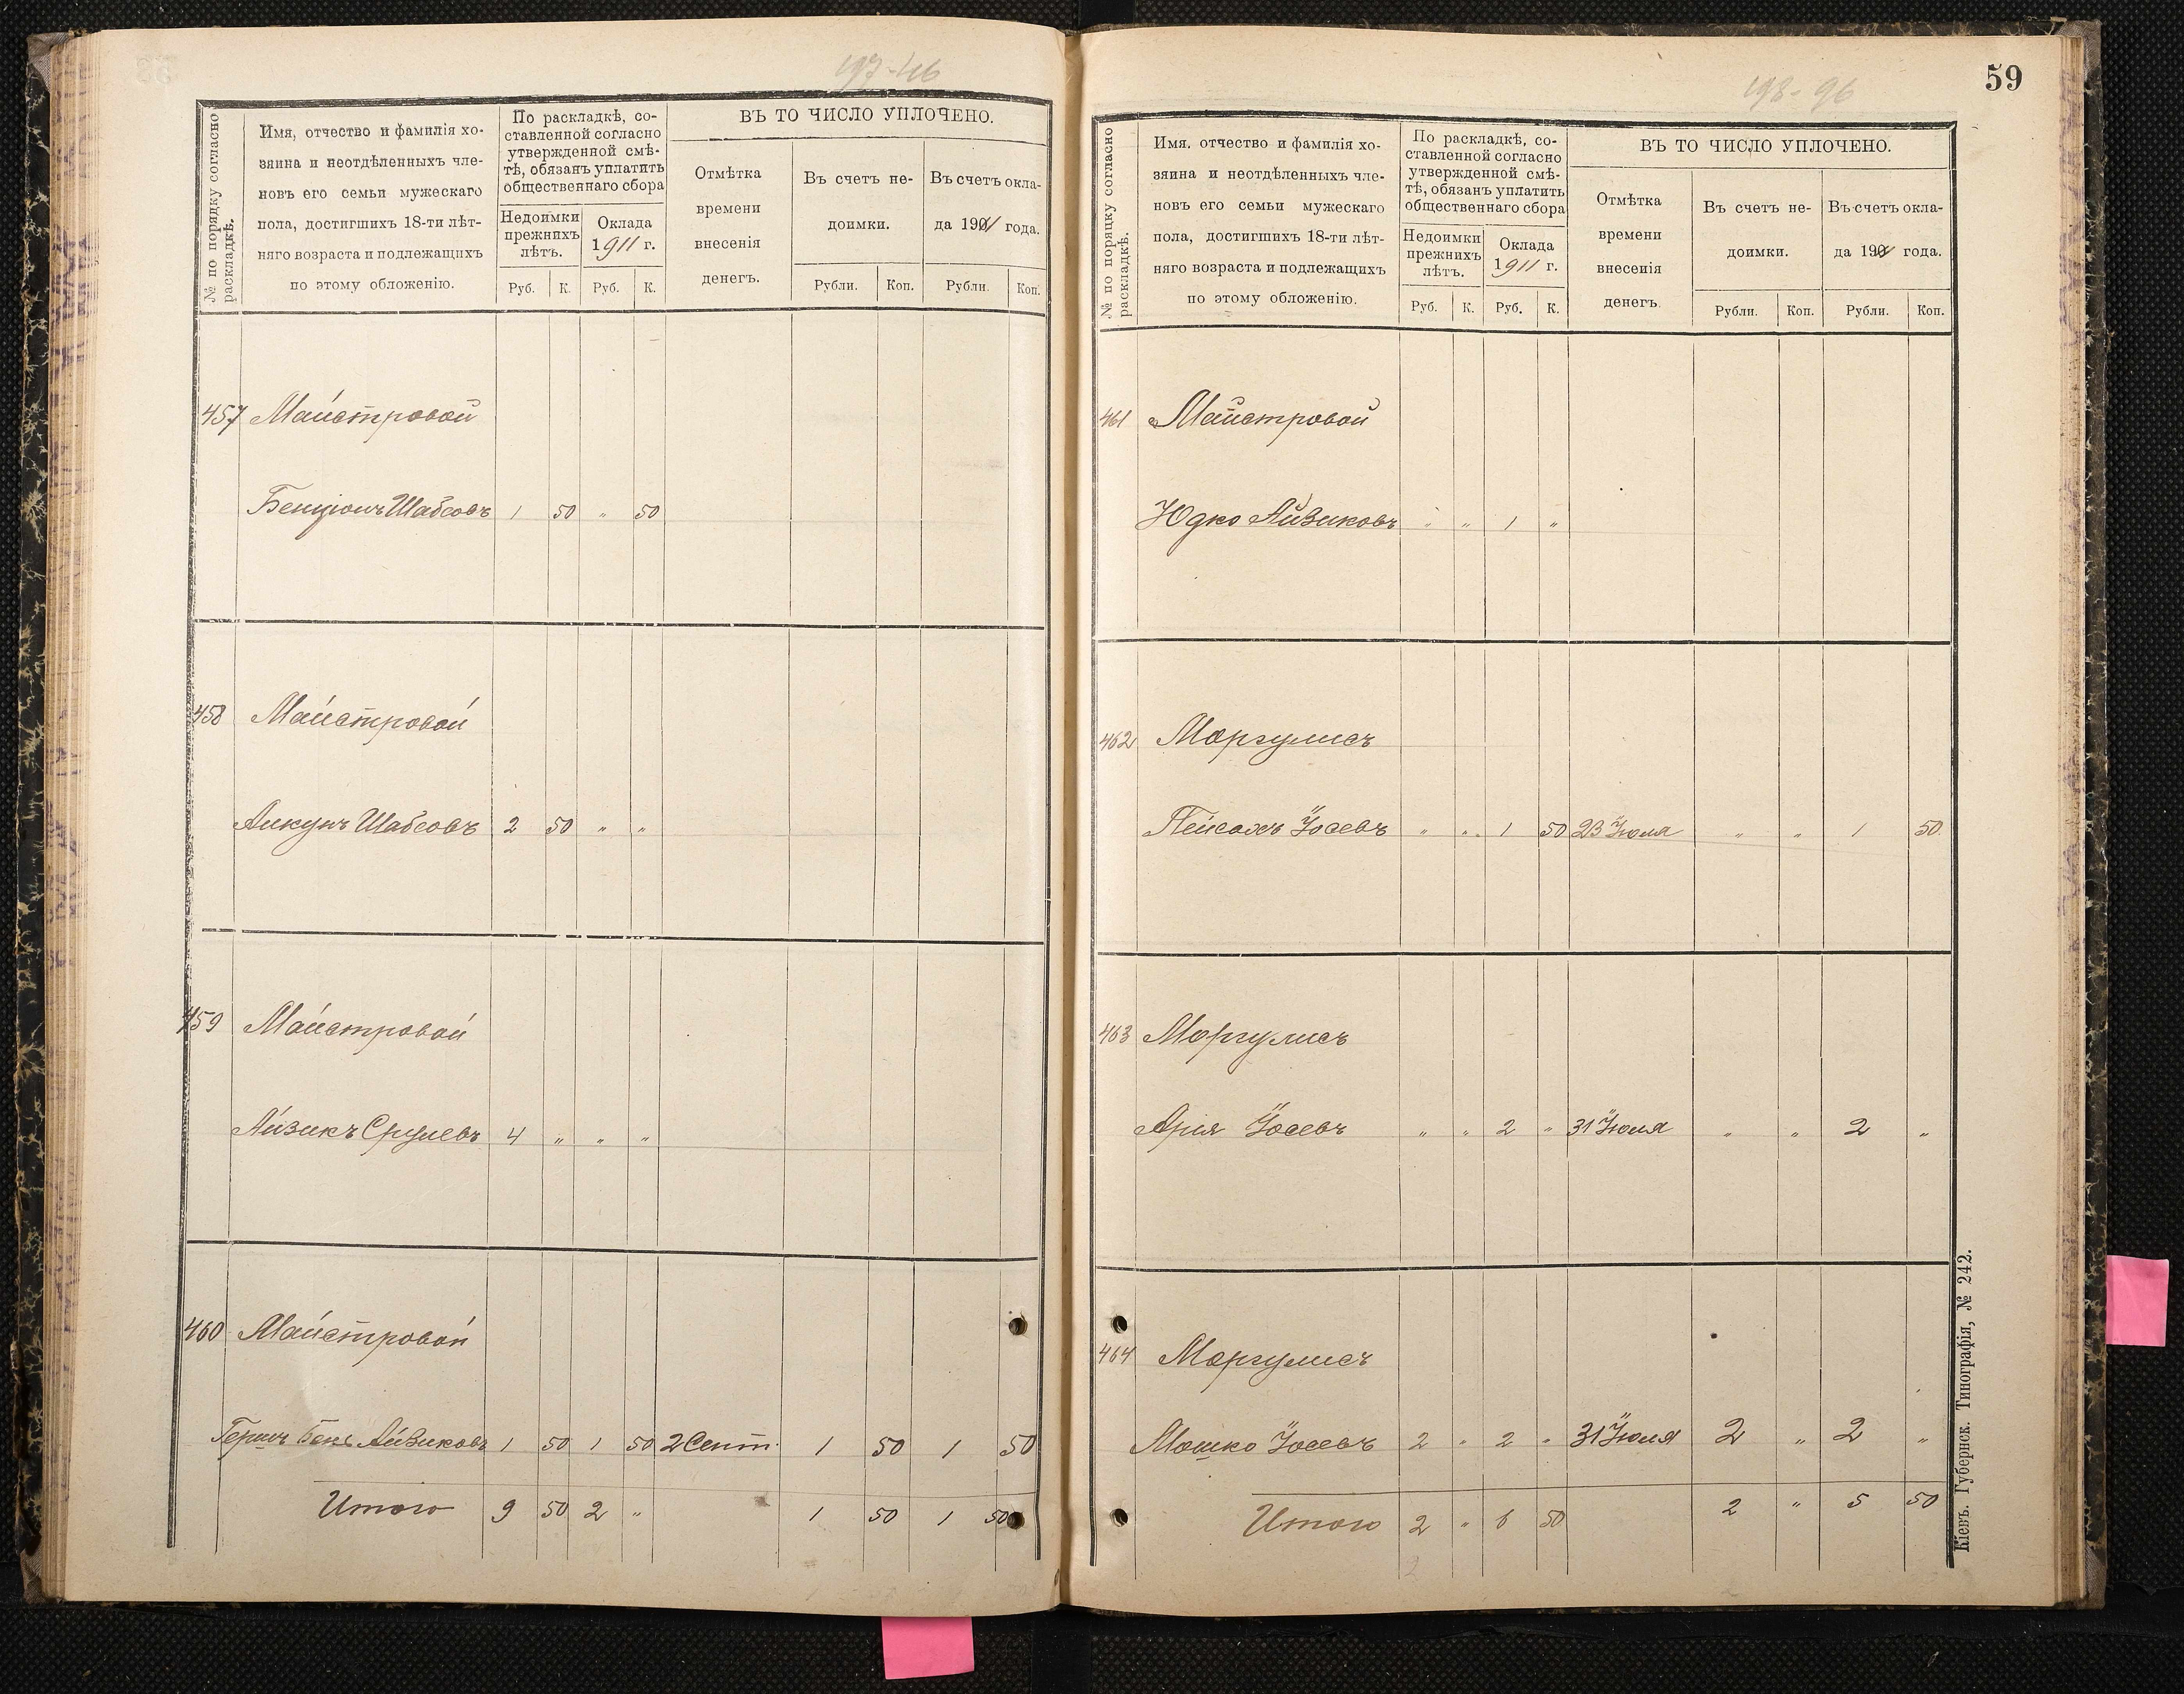 197-46
№ по порядку согласно
раскладкѣ.
Имя, отчество и фамилія хо-
зяина и неотдѣленныхъ чле-
новъ его семьи мужескаго
пола, достигшихъ 18-ти лѣт-
няго возраста и подлежащихъ
по этому обложенію.
По раскладкѣ, со-
ставленной согласно
утвержденной смѣ-
тѣ, обязанъ уплатить
общественнаго сбора
Недоимки
прежнихъ
лѣтъ.
Оклада
1911 г.
Руб. К. Руб. К.
ВЪ ТО ЧИСЛО УПЛОЧЕНО.
Отмѣтка
времени
внесенія
денегъ.
Въ счетъ не-
доимки.
Въ счетъ окла-
да 1911 года.
Рубли. Коп. Рубли. Коп.
457 Майстровой
Бенціонъ Шабсовъ 1 50 " 50
458 Майстровой
Анкунъ Шабсовъ 2 50 " "
459 Майстровой
Айзикъ Срулевъ 4 " " "
460 Майстровой
Гершъ Бенъ Айзиковъ 1 50 1 50 2 Сент. 1 50 1 50
Итого 9 50 2 " 1 50 1 50
198-96
59
№ по порядку согласно
раскладкѣ.
Имя, отчество и фамилія хо-
зяина и неотдѣленныхъ чле-
новъ его семьи мужескаго
пола, достигшихъ 18-ти лѣт-
няго возраста и подлежащихъ
по этому обложенію.
По раскладкѣ, со-
ставленной согласно
утвержденной смѣ-
тѣ, обязанъ уплатить
общественнаго сбора
Недоимки
прежнихъ
лѣтъ.
Оклада
1911 г.
Руб. К. Руб. К.
ВЪ ТО ЧИСЛО УПЛОЧЕНО.
Отмѣтка
времени
внесенія
денегъ.
Въ счетъ не-
доимки.
Въ счетъ окла-
да 1911 года.
Рубли. Коп. Рубли. Коп.
461 Майстровой
Юдко Айзиковъ " " 1 "
462 Моргулисъ
Пейсахъ Іосевъ " " 1 50 23 Іюля " " 1 50
463 Моргулисъ
Арія Іосевъ " " 2 " 31 Іюля " " 2 "
464 Моргулисъ
Мошко Іосевъ 2 " 2 " 31 Іюля 2 " 2 "
Итого 2 " 6 50 2 " 5 50
2
Кіевъ. Губернск. Типографія, № 242.